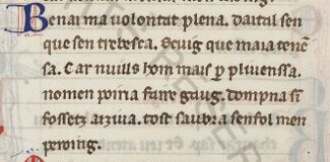 Benai ma uolontat plena. daital sen
que sen trebesca. Seuig que maia tenc̄
sa. Car nuills hom mais ꝑ pliuenssa.
nomen poiria faire gaug. dompna si
fossetz arziua. tost saubra senfol men
peroing.